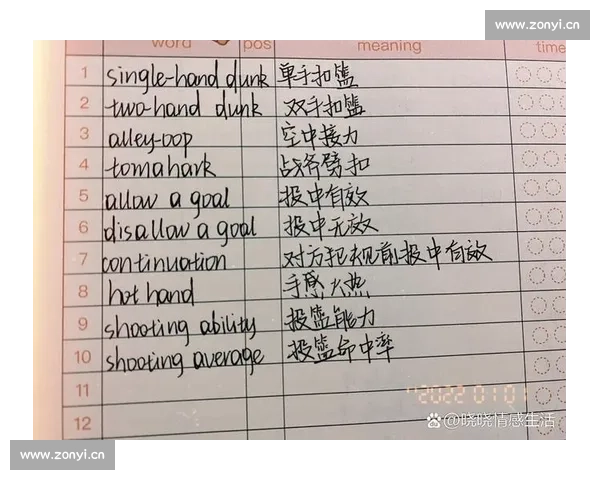 www.zonyi.cn
word pos meaning time
1 single-hand dunk 单手扣篮
2 two-hand dunk 双手扣篮
3 alley-oop 空中接力
4 tomahark 战斧劈扣
5 allow a goal 投中有效
6 disallow a goal 投中无效
7 continuation 对方犯规前投中有效
8 hot hand 手感火热
9 shooting ability 投篮能力
10 shooting average 投篮命中率
11
12
'2022 01 01
@晓晓情感生活
www.zonyi.cn